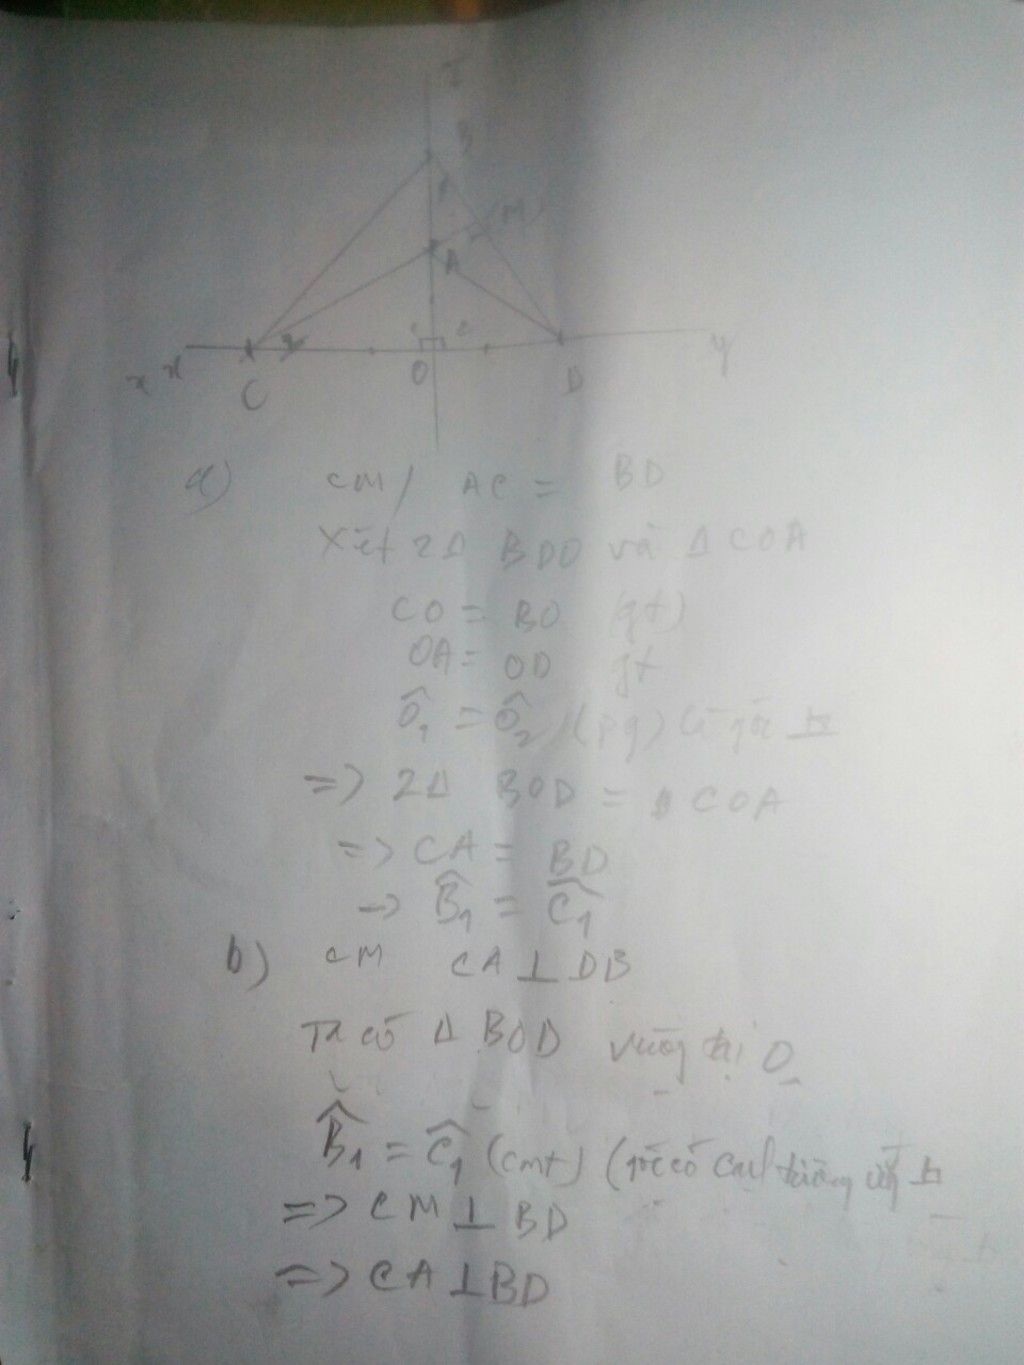 B
(M)
A
x x
C
O
D
y
a) CM / AC = BD
Xét 2Δ BDO và Δ COA
CO = BO (gt)
OA = OD gt
Ô₁ = Ô₂
=> 2Δ BOD = Δ COA
=> CA = BD
-> B̂₁ = Ĉ₁
b) CM CA ⊥ DB
Ta có Δ BOD vuông tại O
B̂₁ = Ĉ₁ (cmt) (góc có cạnh tương ứng ⊥
=> CM ⊥ BD
=> CA ⊥ BD